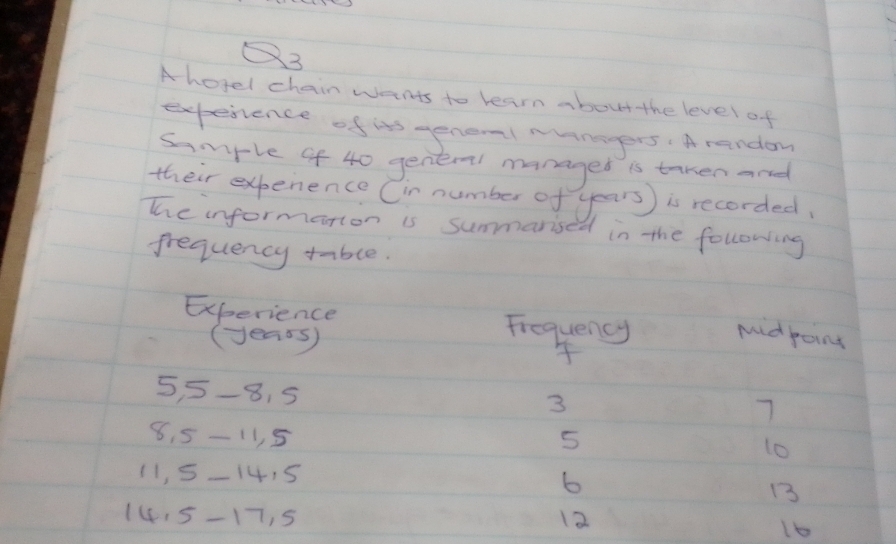 Q3
A hotel chain wants to learn about the level of
experience of its general managers. A random
Sample of 40 general manages is taken and
their experience (in number of years) is recorded,
The information is summarised in the following
frequency table.
Experience Frequency Midpoint
(years) f
5,5 - 8,5 3 7
8,5 - 11,5 5 10
11,5 - 14.5 6 13
14.5 - 17,5 12 16